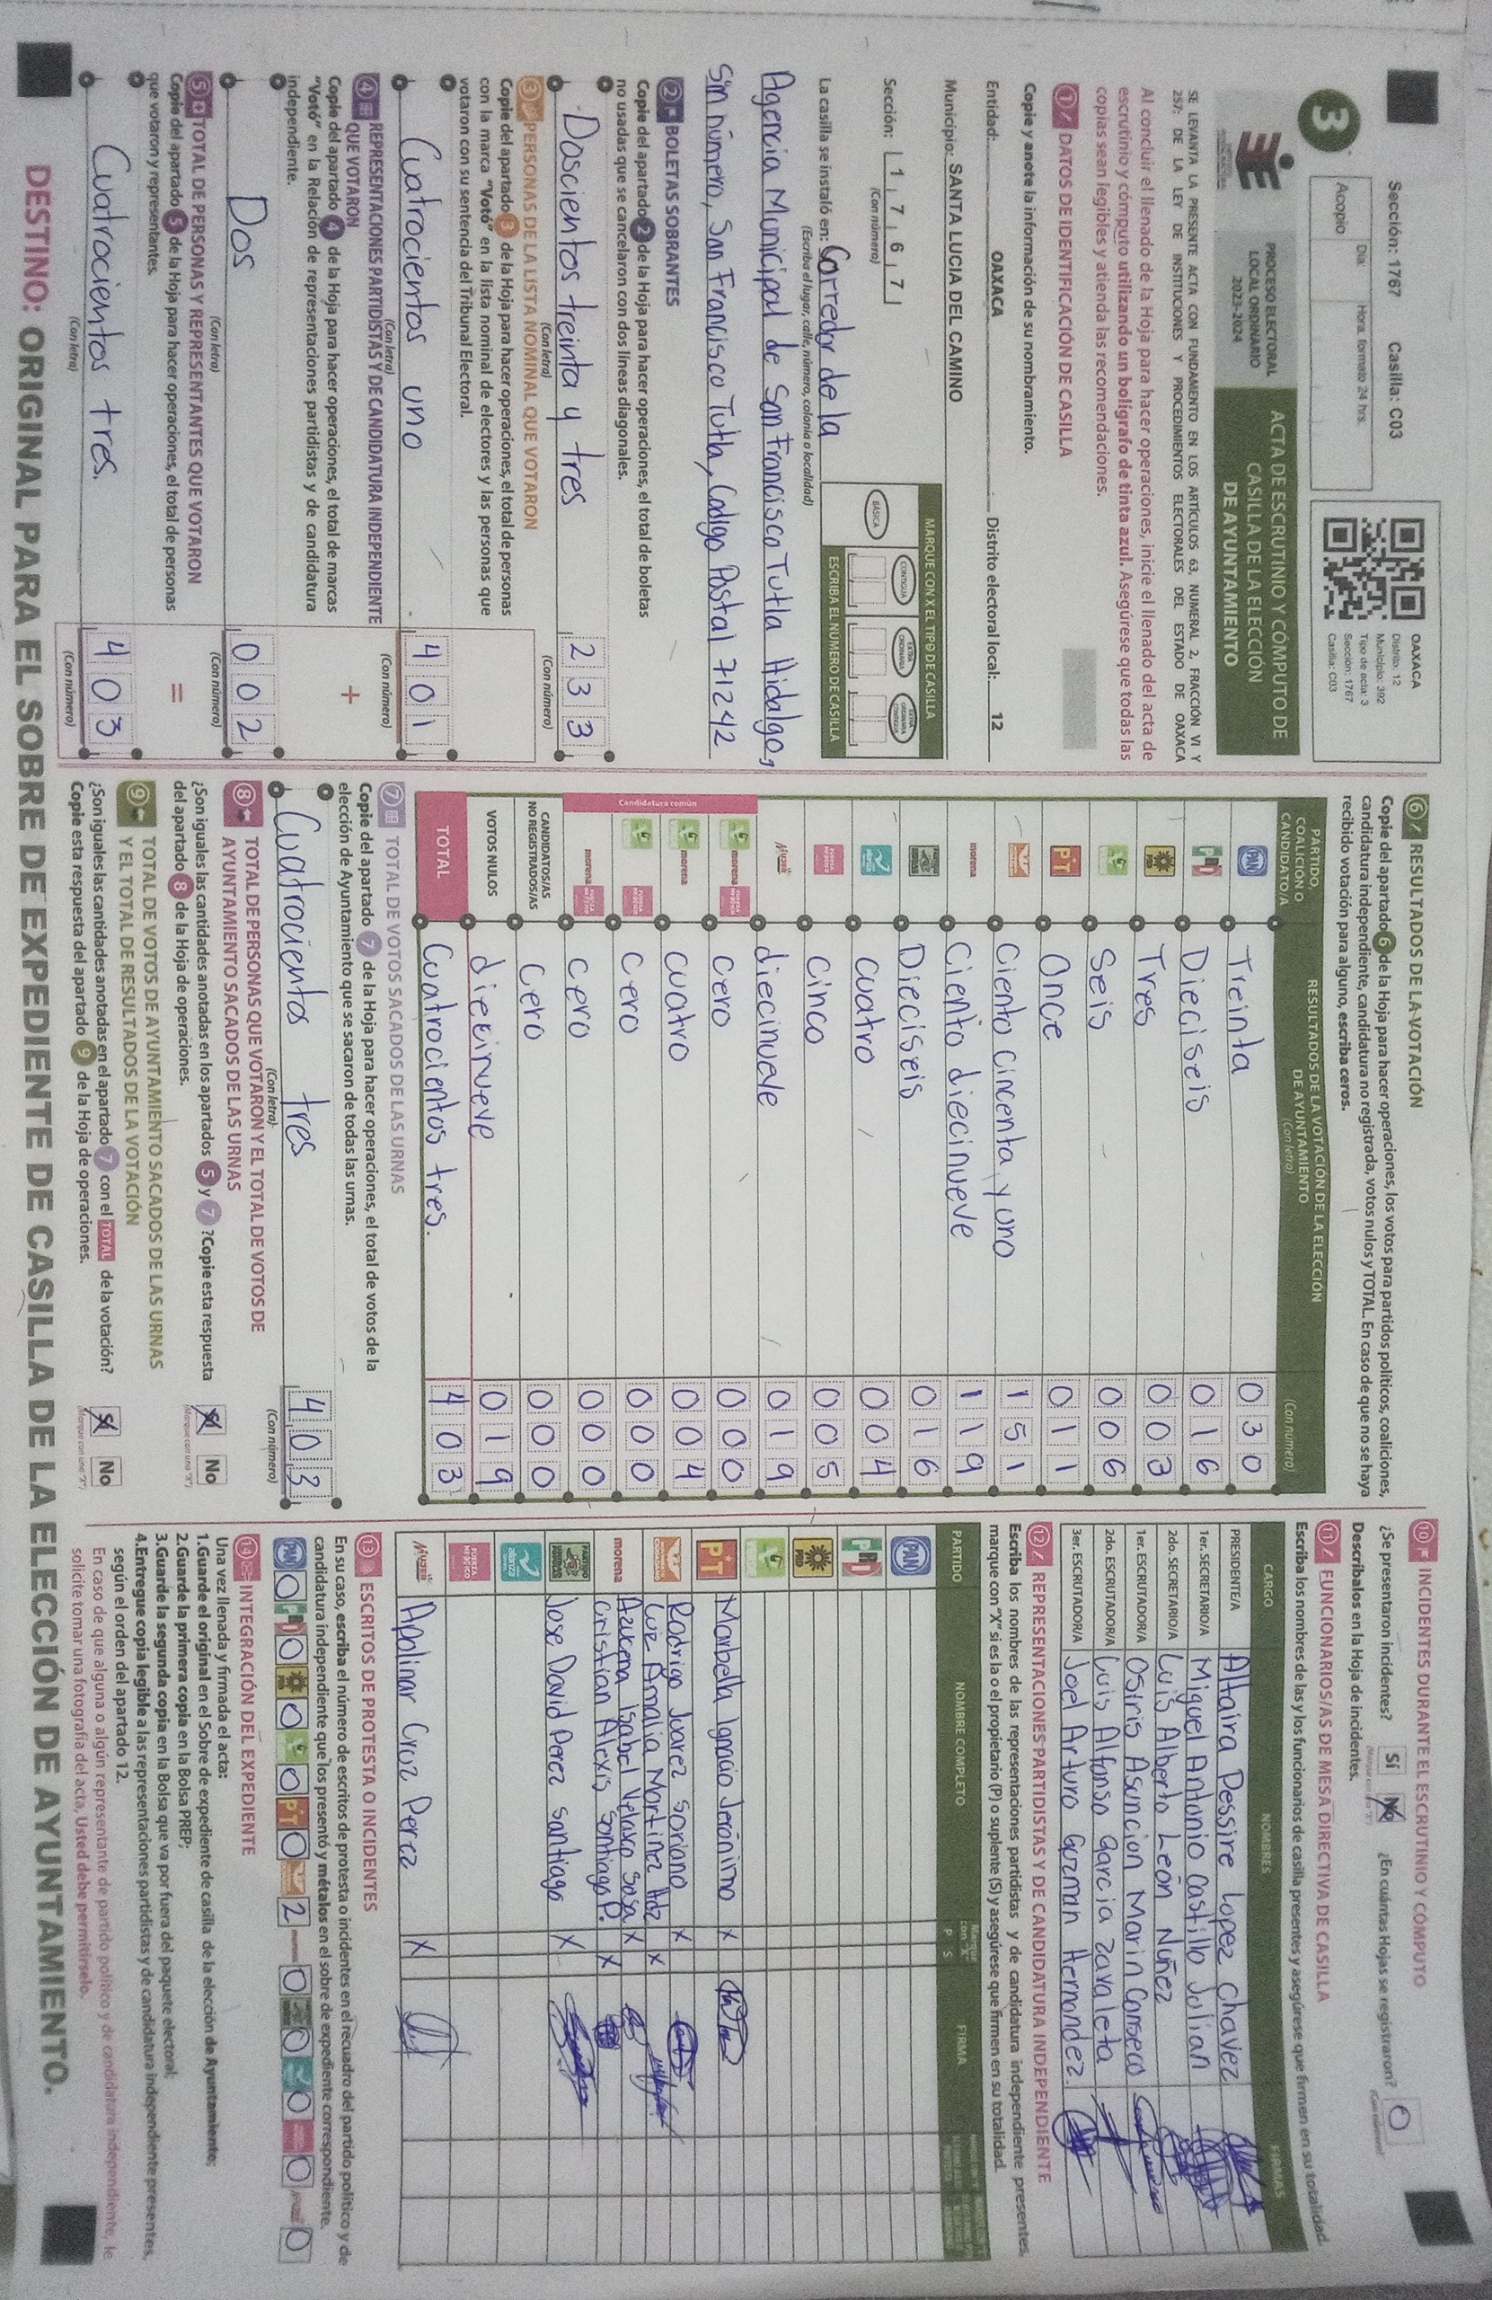 Sección: 1767 Casilla: C03
Día: Hora: formato 24 hrs.
Acopio
3
OAXACA
Distrito: 12
Municipio: 392
Tipo de acta: 3
Sección: 1767
Casilla: C03
PROCESO ELECTORAL
LOCAL ORDINARIO
2023-2024
ACTA DE ESCRUTINIO Y CÓMPUTO DE
CASILLA DE LA ELECCIÓN
DE AYUNTAMIENTO
SE LEVANTA LA PRESENTE ACTA CON FUNDAMENTO EN LOS ARTÍCULOS 63, NUMERAL 2, FRACCIÓN VI Y
257; DE LA LEY DE INSTITUCIONES Y PROCEDIMIENTOS ELECTORALES DEL ESTADO DE OAXACA
Al concluir el llenado de la Hoja para hacer operaciones, inicie el llenado del acta de
escrutinio y cómputo utilizando un bolígrafo de tinta azul. Asegúrese que todas las
copias sean legibles y atienda las recomendaciones.
1 DATOS DE IDENTIFICACIÓN DE CASILLA
Copie y anote la información de su nombramiento.
Entidad: OAXACA Distrito electoral local: 12
Municipio: SANTA LUCIA DEL CAMINO
Sección: 1 7 6 7
(Con número)
MARQUE CON X EL TIPO DE CASILLA
BÁSICA CONTIGUA EXTRAORDINARIA EXTRAORDINARIA CONTIGUA
ESCRIBA EL NÚMERO DE CASILLA
La casilla se instaló en: Corredor de la
(Escriba el lugar, calle, número, colonia o localidad)
Agencia Municipal de San Francisco Tutla Hidalgo,
Sin número, San Francisco Tutla, Codigo Postal 71242
2 BOLETAS SOBRANTES
Copie del apartado 2 de la Hoja para hacer operaciones, el total de boletas
no usadas que se cancelaron con dos líneas diagonales.
Doscientos treinta y tres 2 3 3
(Con letra) (Con número)
3 PERSONAS DE LA LISTA NOMINAL QUE VOTARON
Copie del apartado 3 de la Hoja para hacer operaciones, el total de personas
con la marca "Votó" en la lista nominal de electores y las personas que
votaron con su sentencia del Tribunal Electoral.
Cuatrocientos uno 4 0 1
(Con letra) (Con número)
4 REPRESENTACIONES PARTIDISTAS Y DE CANDIDATURA INDEPENDIENTE
QUE VOTARON
Copie del apartado 4 de la Hoja para hacer operaciones, el total de marcas
"Votó" en la Relación de representaciones partidistas y de candidatura
independiente.
+
Dos 0 0 2
(Con letra) (Con número)
5 TOTAL DE PERSONAS Y REPRESENTANTES QUE VOTARON
Copie del apartado 5 de la Hoja para hacer operaciones, el total de personas
que votaron y representantes.
=
Cuatrocientos tres. 4 0 3
(Con letra) (Con número)
6 RESULTADOS DE LA VOTACIÓN
Copie del apartado 6 de la Hoja para hacer operaciones, los votos para partidos políticos, coaliciones,
candidatura independiente, candidatura no registrada, votos nulos y TOTAL. En caso de que no se haya
recibido votación para alguno, escriba ceros.
PARTIDO,
COALICIÓN O
CANDIDATO/A
RESULTADOS DE LA VOTACIÓN DE LA ELECCIÓN
DE AYUNTAMIENTO
(Con letra) (Con número)
PAN Treinta 0 3 0
PRI Dieciseis 0 1 6
PRD Tres 0 0 3
Seis 0 0 6
PT Once 0 1 1
Ciento cincenta y uno 1 5 1
morena Ciento diecinueve 1 1 9
Dieciseis 0 1 6
cuatro 0 0 4
cinco 0 0 5
MUJER diecinueve 0 1 9
Candidatura común
morena cero 0 0 0
morena cuatro 0 0 4
cero 0 0 0
morena cero 0 0 0
CANDIDATOS/AS
NO REGISTRADOS/AS Cero 0 0 0
VOTOS NULOS diecinueve 0 1 9
TOTAL Cuatrocientos tres. 4 0 3
7 TOTAL DE VOTOS SACADOS DE LAS URNAS
Copie del apartado 7 de la Hoja para hacer operaciones, el total de votos de la
elección de Ayuntamiento que se sacaron de todas las urnas.
Cuatrocientos tres 4 0 3
(Con letra) (Con número)
8 TOTAL DE PERSONAS QUE VOTARON Y EL TOTAL DE VOTOS DE
AYUNTAMIENTO SACADOS DE LAS URNAS
¿Son iguales las cantidades anotadas en los apartados 5 y 7 ? Copie esta respuesta
del apartado 8 de la Hoja de operaciones.
Sí No
(Marque con una "X")
9 TOTAL DE VOTOS DE AYUNTAMIENTO SACADOS DE LAS URNAS
Y EL TOTAL DE RESULTADOS DE LA VOTACIÓN
¿Son iguales las cantidades anotadas en el apartado 7 con el TOTAL de la votación?
Copie esta respuesta del apartado 9 de la Hoja de operaciones.
Sí No
(Marque con una "X")
10 INCIDENTES DURANTE EL ESCRUTINIO Y CÓMPUTO
¿Se presentaron incidentes? Sí No ¿En cuántas Hojas se registraron? 0
Descríbalos en la Hoja de incidentes.
11 FUNCIONARIOS/AS DE MESA DIRECTIVA DE CASILLA
Escriba los nombres de las y los funcionarios de casilla presentes y asegúrese que firmen en su totalidad.
CARGO NOMBRES FIRMAS
PRESIDENTE/A Altaira Dessire Lopez Chavez
1er. SECRETARIO/A Miguel Antonio Castillo Julian
2do. SECRETARIO/A Luis Alberto León Nuñez
1er. ESCRUTADOR/A Osiris Asencion Marin Canseco
2do. ESCRUTADOR/A Luis Alfonso Garcia Zavaleta
3er. ESCRUTADOR/A Joel Arturo Guzman Hernandez
12 REPRESENTACIONES PARTIDISTAS Y DE CANDIDATURA INDEPENDIENTE
Escriba los nombres de las representaciones partidistas y de candidatura independiente presentes,
marque con "X" si es la o el propietario (P) o suplente (S) y asegúrese que firmen en su totalidad.
PARTIDO NOMBRE COMPLETO Marque con "X" P S FIRMA
PAN
PRI
PRD
PT Marbella Ignacio Jerónimo X
Rodrigo Juarez Soriano X
Luz Amalia Martinez Hdz X
morena Azucena Isabel Velasco Sosa X
Cristian Alexis Santiago P. X
Jose David Perez Santiago X
MUJER Apolinar Cruz Perez X
13 ESCRITOS DE PROTESTA O INCIDENTES
En su caso, escriba el número de escritos de protesta o incidentes en el recuadro del partido político y de
candidatura independiente que los presentó y métalos en el sobre de expediente correspondiente.
PAN 0 PRI 0 PRD 0 0 PT 0 2 morena 0 0 0 0 0
14 INTEGRACIÓN DEL EXPEDIENTE
Una vez llenada y firmada el acta:
1.Guarde el original en el Sobre de expediente de casilla de la elección de Ayuntamiento;
2.Guarde la primera copia en la Bolsa PREP;
3.Guarde la segunda copia en la Bolsa que va por fuera del paquete electoral;
4.Entregue copia legible a las representaciones partidistas y de candidatura independiente presentes,
según el orden del apartado 12.
En caso de que alguna o algún representante de partido político y de candidatura independiente, le
solicite tomar una fotografía del acta, Usted debe permitírselo.
DESTINO: ORIGINAL PARA EL SOBRE DE EXPEDIENTE DE CASILLA DE LA ELECCIÓN DE AYUNTAMIENTO.